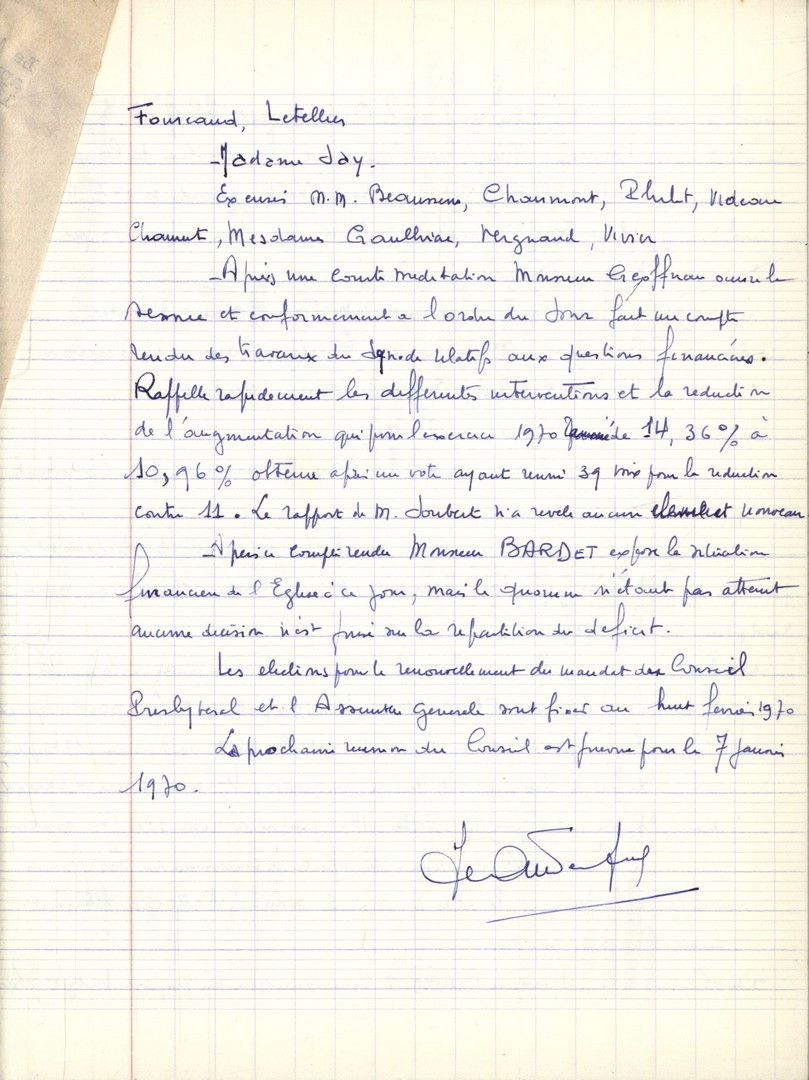 Fourcaud, Letellier
- Madame Jay.
Excusés M.M. Beaussens, Chaumont, Videau
Chamut, Mesdames Gaulthier, Vergnaud, Vivier
- Après une courte meditation Monsieur ouvre la
seance et conformement a l'ordre du Jour fait un compte
rendu des travaux du Synode relatifs aux questions financières.
Rappelle rapidement les differentes interventions et la reduction
de l'augmentation qui pour l'exercice 1970 de 14,36% à
10,96% obtenue après un vote ayant reuni 39 voix pour la reduction
contre 11. Le rapport de M. Joubert n'a revele aucun element nouveau
Après ce compte rendu Monsieur BARDET expose la situation
financiere de l'Eglise à ce jour, mais le quorum n'étant pas atteint
aucune decision n'est prise sur la repartition du deficit.
Les elections pour le renouvellement du mandat des Conseil
Presbyteral et l'Assemblee Generale sont fixees au huit fevrier 1970
La prochaine reunion du Conseil est prevue pour le 7 Janvier
1970.